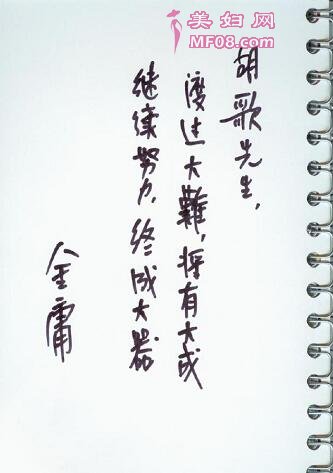 美妇网
MF08.com
胡歌先生，
渡过大難，将有大成
继续努力，终成大器
金庸